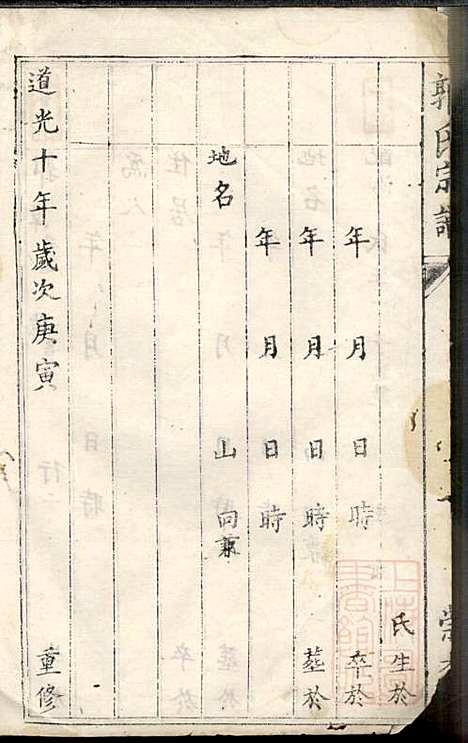 郭氏宗譜
氏生於
年 月 日 時 卒於
年 月 日 時 葬於
年 月 日 時
地名 山 向兼
道光十年歲次庚寅 重修